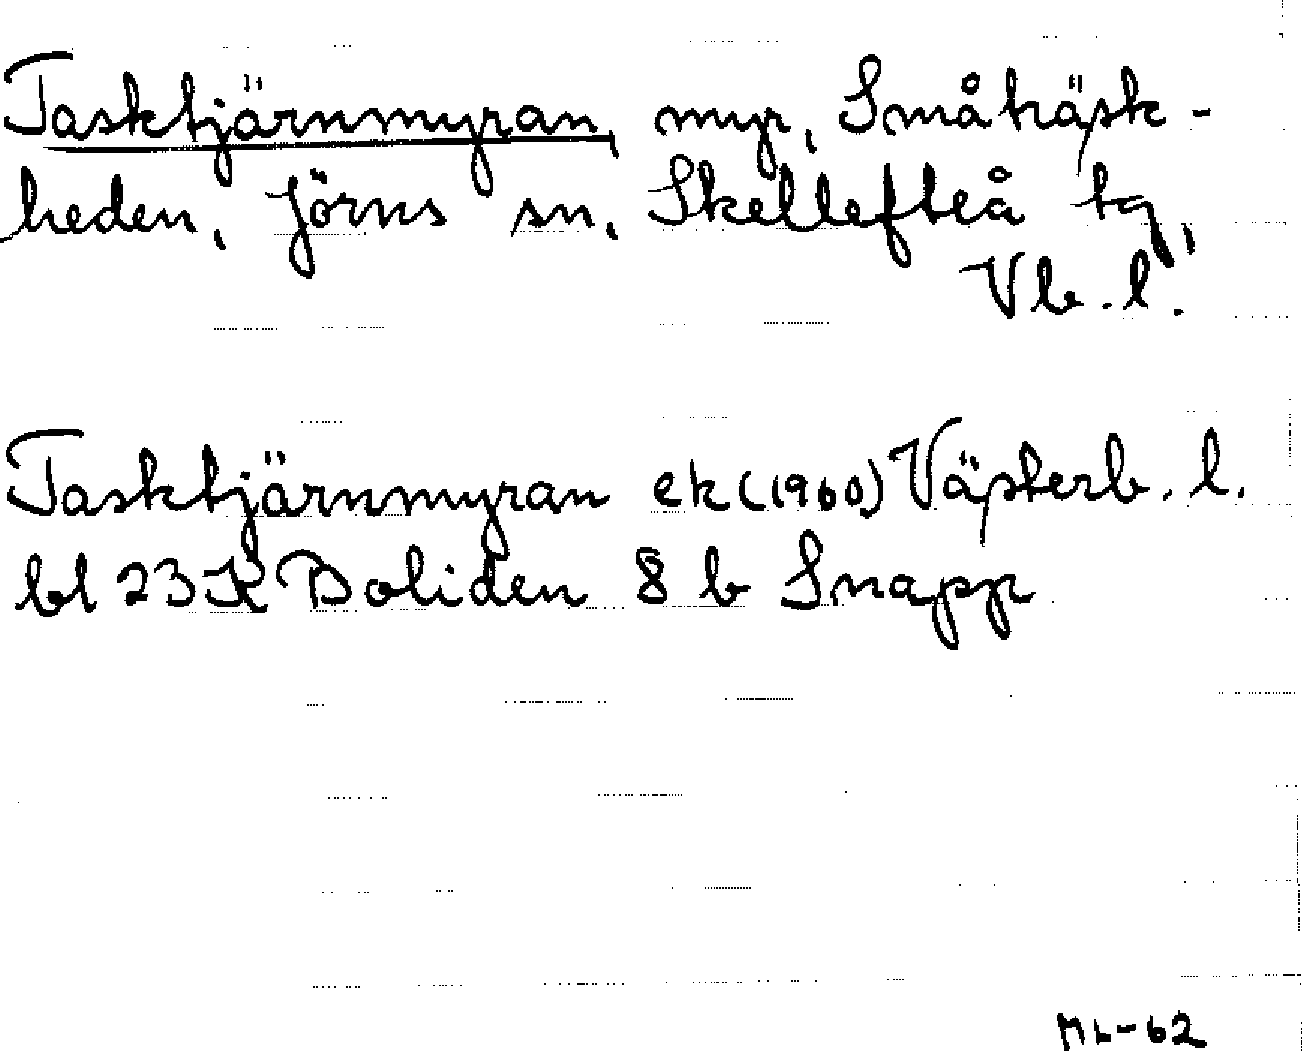 Tasktjärnmyran, myr, Småträsk-
heden, Jörns sn, Skellefteå tg,
Vb. l.
Tasktjärnmyran ek (1960) Västerb. l.
bl 23 K Boliden 8 b Snapp
ML-62